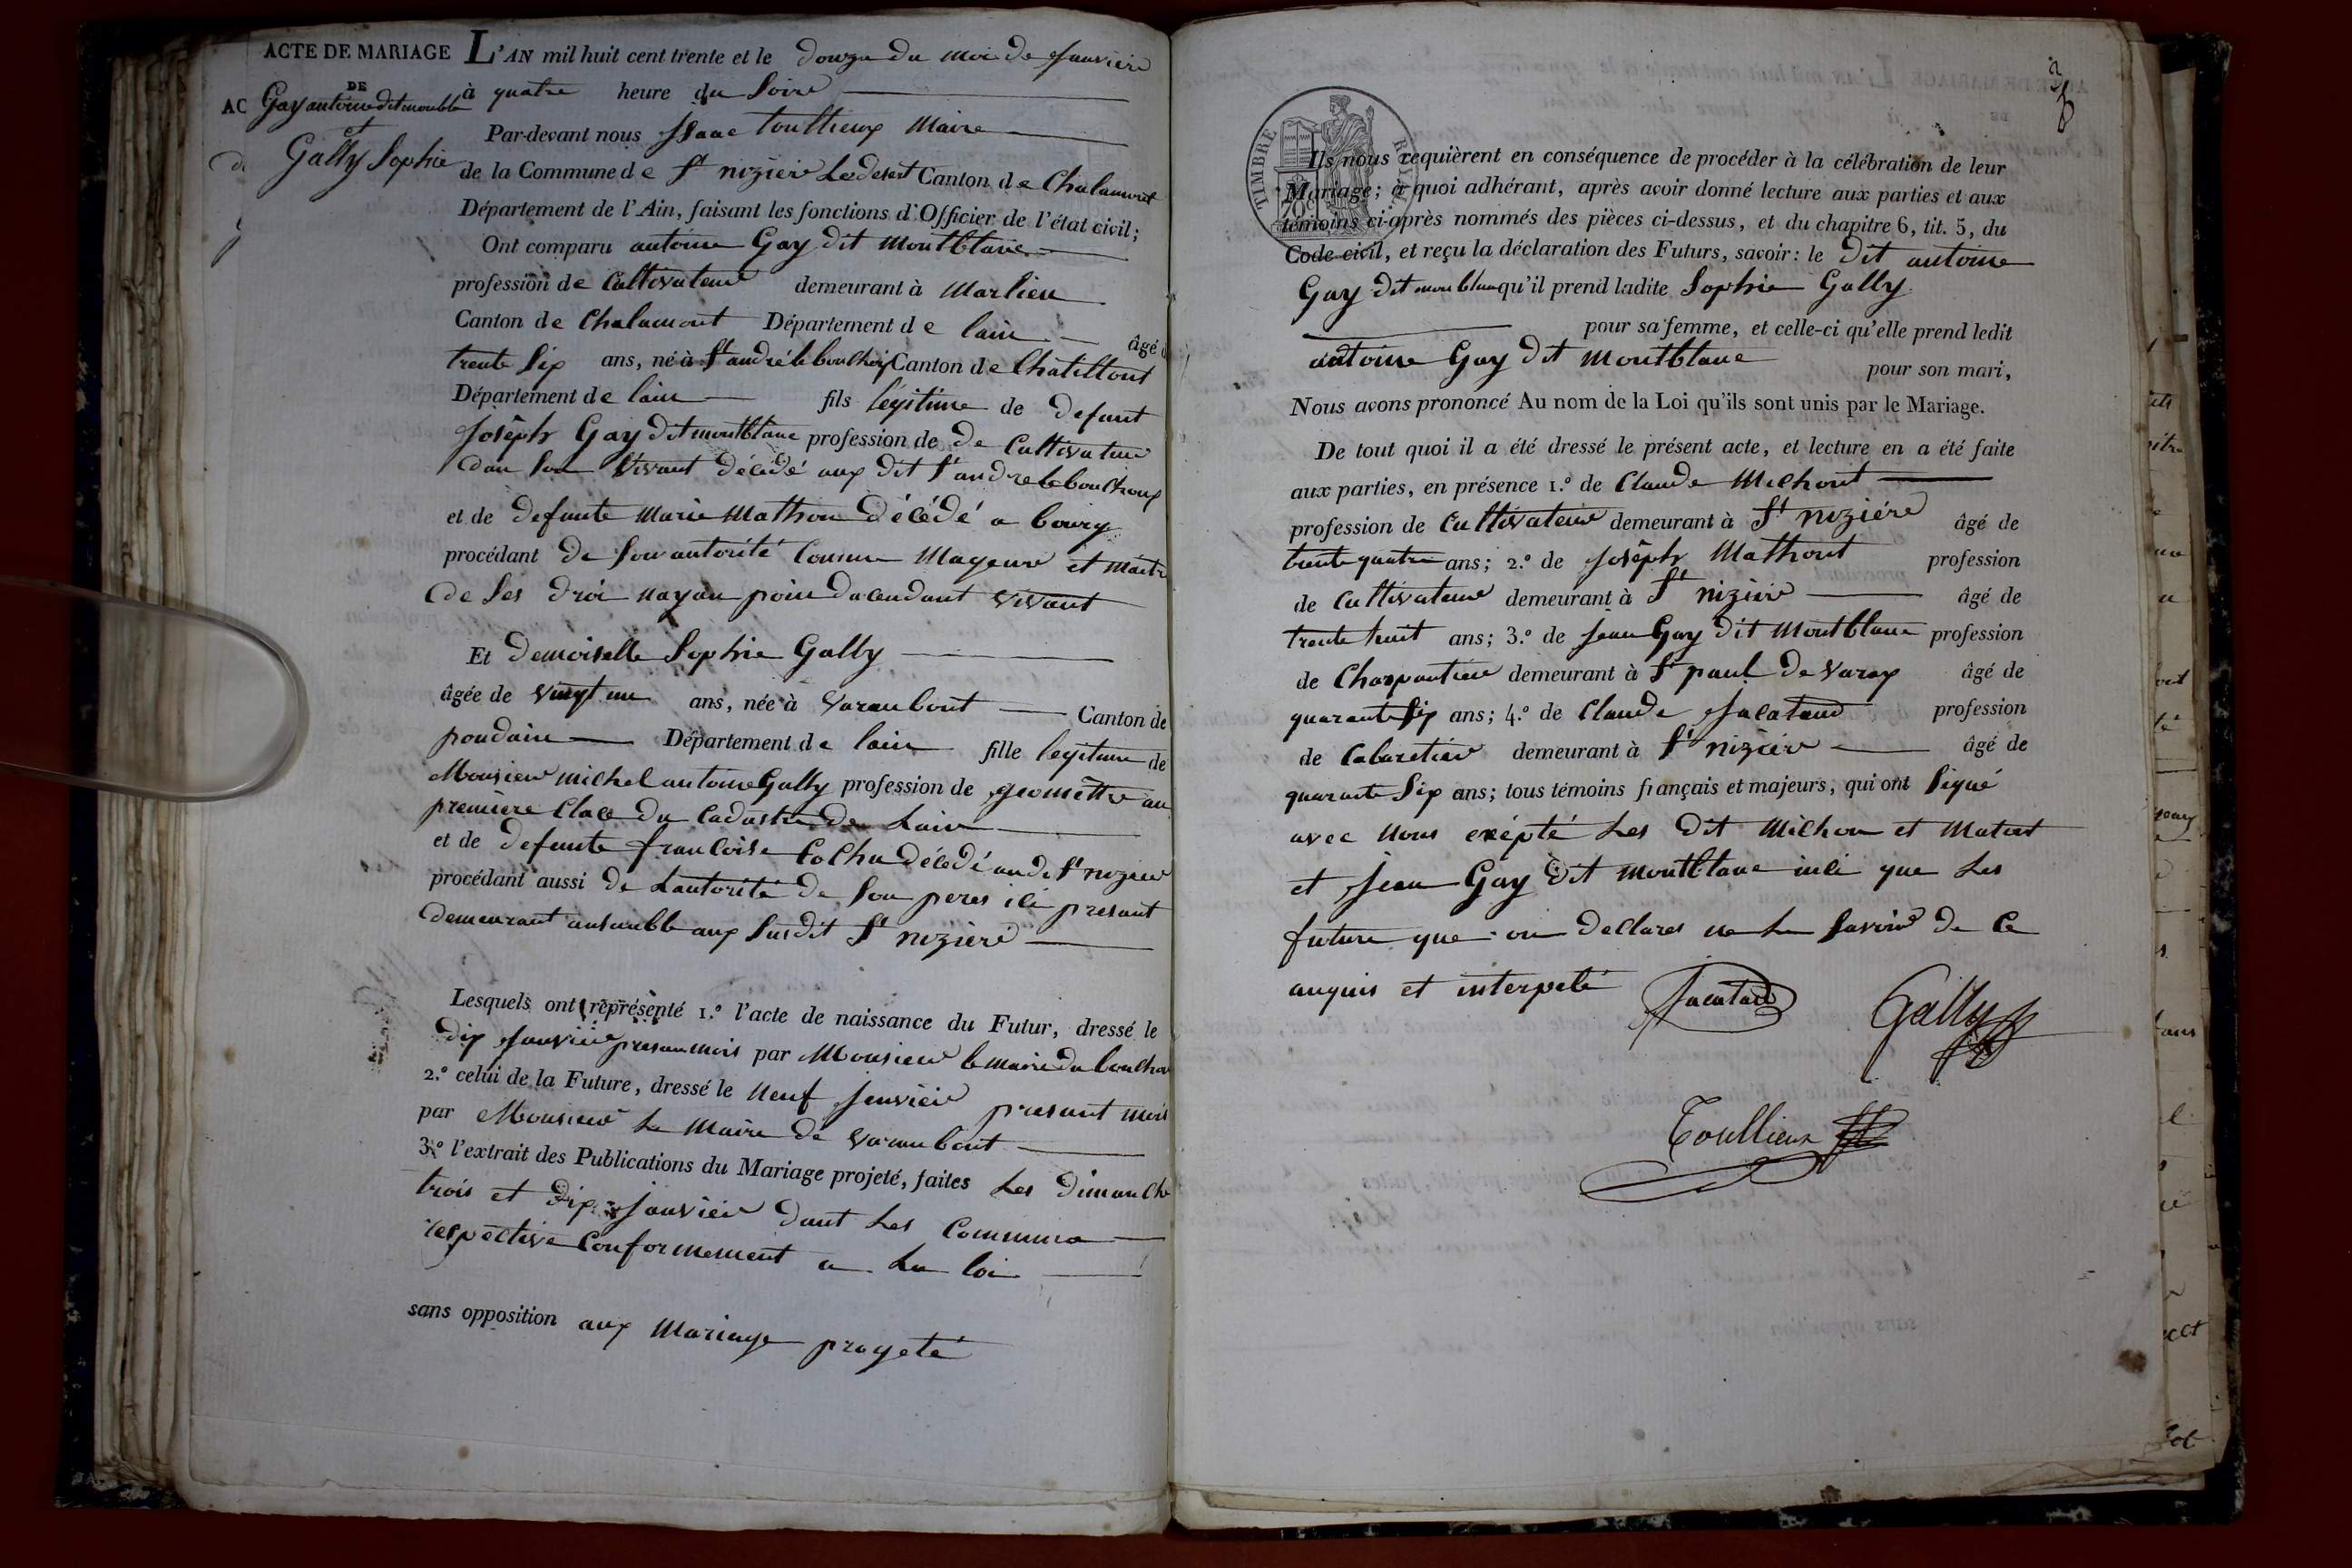 ACTE DE MARIAGE L'AN mil huit cent trente et le douze du moi de Janvier
DE
à quatre heure du Soire
Gay antoine dit monblan
AC
et
Par-devant nous Isaac Toullieux Maire
Gally Sophie
de la Commune de St nizier Le desert Canton de Chalamont
Département de l'Ain, faisant les fonctions d'Officier de l'état civil;
Ont comparu antoine Gay dit Montblanc
profession de Cultivateur demeurant à Marlieu
Canton de Chalamont Département de lain âgé d
trente Six ans, né à St andré le bouchoy Canton de Chatillont
Département de lain fils légitime de defunt
Joséph Gay dit montblanc profession de de Cultivateur
dan Son Vivant décédé aux dit St andre le bouchoux
et de defunte Marie Mathon décédé a bourg
procédant de Son autorité Comme Mageure et maitre
de Ses droi nayan poin dacendant vivant
Et demoiselle Sophie Gally
âgée de vingt un ans, née à varambont Canton de
pondain Département de lain fille legitime de
Monsieur michel antoine Gally profession de geomettre an
premiere Clace du Cadastre de Lain
et de defunte francoise Cochu décédé audi St nizier
procédant aussi de Lautorité de Son peres ici présant
demeurant ansamble aux Susdit St niziere
Lesquels ont représenté 1.º l'acte de naissance du Futur, dressé le
dix Janvier presan mois par Monsieur le maire du bouchou
2.º celui de la Future, dressé le neuf Janvier présant mois
par Monsieur Le Maire de varambont
3.º l'extrait des Publications du Mariage projeté, faites Les dimanche
trois et dix Janvier dant Les Commune
respective Conformement a La loi
sans opposition aux Mariage progeté
TIMBRE ROYAL
70c
Ils nous requièrent en conséquence de procéder à la célébration de leur
Mariage; à quoi adhérant, après avoir donné lecture aux parties et aux
témoins ci-après nommés des pièces ci-dessus, et du chapitre 6, tit. 5, du
Code civil, et reçu la déclaration des Futurs, savoir: le dit antoine
Gay dit monblan qu'il prend ladite Sophie Gally
pour sa femme, et celle-ci qu'elle prend ledit
antoine Gay dit Montblanc pour son mari,
Nous avons prononcé Au nom de la Loi qu'ils sont unis par le Mariage.
De tout quoi il a été dressé le présent acte, et lecture en a été faite
aux parties, en présence 1.º de Claude Michont
profession de Cultivateur demeurant à St niziére âgé de
trente quatre ans; 2.º de Joséph Mathont profession
de Cultivateur demeurant à St nizier âgé de
trente huit ans; 3.º de Jean Gay dit Montblanc profession
de Charpantier demeurant à St paul de varax âgé de
quarante Six ans; 4.º de Claude Jacataud profession
de Cabaretier demeurant à St niziér âgé de
quarante Six ans; tous témoins français et majeurs, qui ont Signé
avec nous exépté Les dit Michon et Matont
et Jean Gay dit montblanc insi que Les
future que on declares ne Le Savoir de Ce
anquis et interpelé
Jacataud
Gally
Toullieux